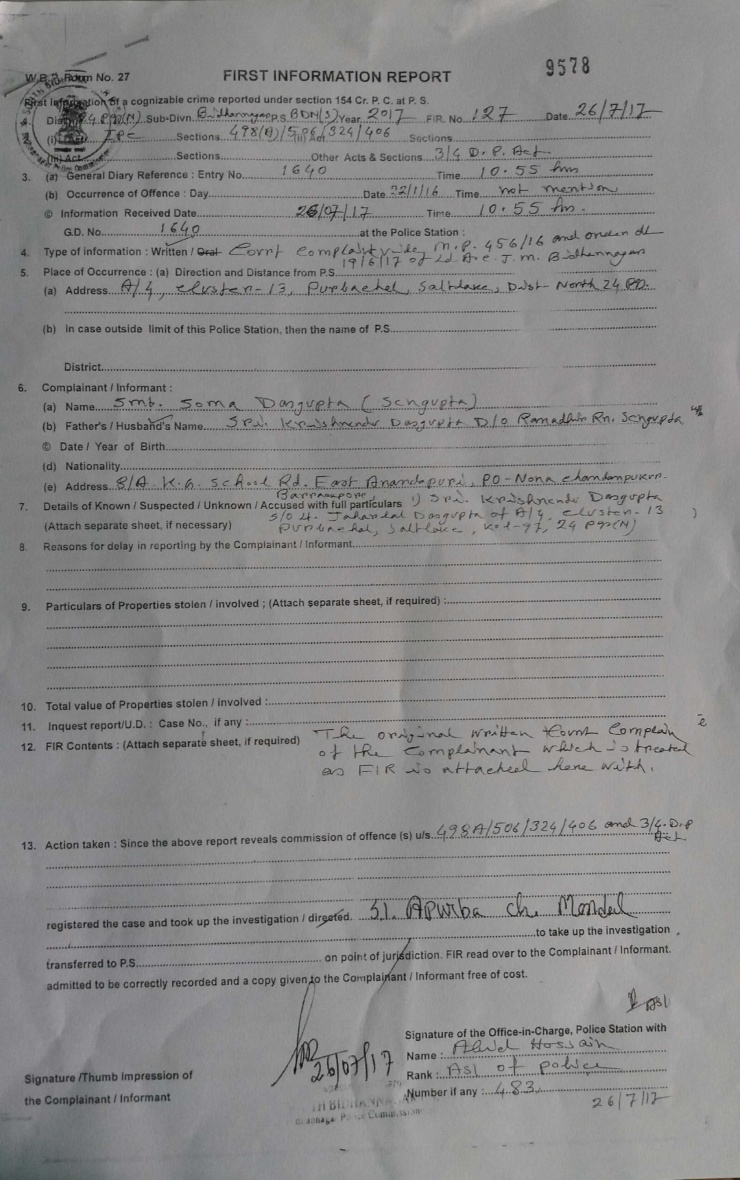 9578
W.B.P. Form No. 27
FIRST INFORMATION REPORT
First Information of a cognizable crime reported under section 154 Cr. P. C. at P. S.
Sub-Divn. Bidhannagar P.S. BDN(S) Year 2017 FIR. No 127 Date 26/7/17
(i) IPC Sections 498(A)/506/324/406 Sections
(iii) Act Sections Other Acts & Sections 3/4 D.P. Act
3. (a) General Diary Reference : Entry No. 1640 Time 10.55 hrs
(b) Occurrence of Offence : Day Date 22/1/16 Time not mention
© Information Received Date 26/07/17 Time 10.55 hrs.
G.D. No. 1640 at the Police Station :
4. Type of information : Written / Oral Court Complaint vide M.P. 456/16 and order dt
19/6/17 of Ld A.C.J.M. Bidhannagar
5. Place of Occurrence : (a) Direction and Distance from P.S.
(a) Address A/4, cluster-13, Purbachal, Saltlake, Dist- North 24 PG.
(b) In case outside limit of this Police Station, then the name of P.S.
District
6. Complainant / Informant :
(a) Name Smt. Soma Dasgupta (Sengupta)
(b) Father's / Husband's Name Sri. Krishnendu Dasgupta D/o Ramadhin Rn. Sengupta
© Date / Year of Birth
(d) Nationality
(e) Address 8/A K.G. School Rd. East Anandapuri, PO- Nona chandanpukur
Barrackpore,
7. Details of Known / Suspected / Unknown / Accused with full particulars 1) Sri. Krishnendu Dasgupta
(Attach separate sheet, if necessary) S/o Lt. Jaharlal Dasgupta of A/4, cluster-13
Purbachal, Saltlake, Kol-97, 24 PGS(N)
8. Reasons for delay in reporting by the Complainant / Informant
9. Particulars of Properties stolen / involved ; (Attach separate sheet, if required) :
10. Total value of Properties stolen / involved :
11. Inquest report/U.D. : Case No., if any :
12. FIR Contents : (Attach separate sheet, if required) The original written Court Complain
of the Complainant which is treated
as FIR is attached here with.
13. Action taken : Since the above report reveals commission of offence (s) u/s. 498A/506/324/406 and 3/4 D.P
Act
registered the case and took up the investigation / directed. S.I. Apurba ch. Mondal
to take up the investigation
transferred to P.S. on point of jurisdiction. FIR read over to the Complainant / Informant.
admitted to be correctly recorded and a copy given to the Complainant / Informant free of cost.
ASI
Signature of the Office-in-Charge, Police Station with
Name : Abid Hossain
Rank : ASI of police
Number if any : 483
26/7/17
26/07/17
Signature /Thumb Impression of
the Complainant / Informant